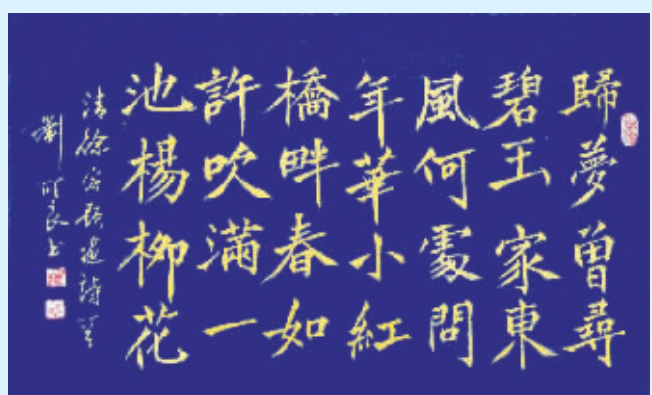 歸夢曾尋
碧玉家東
風何處問
年華小紅
橋畔春如
許吹滿一
池楊柳花
清徐
劉